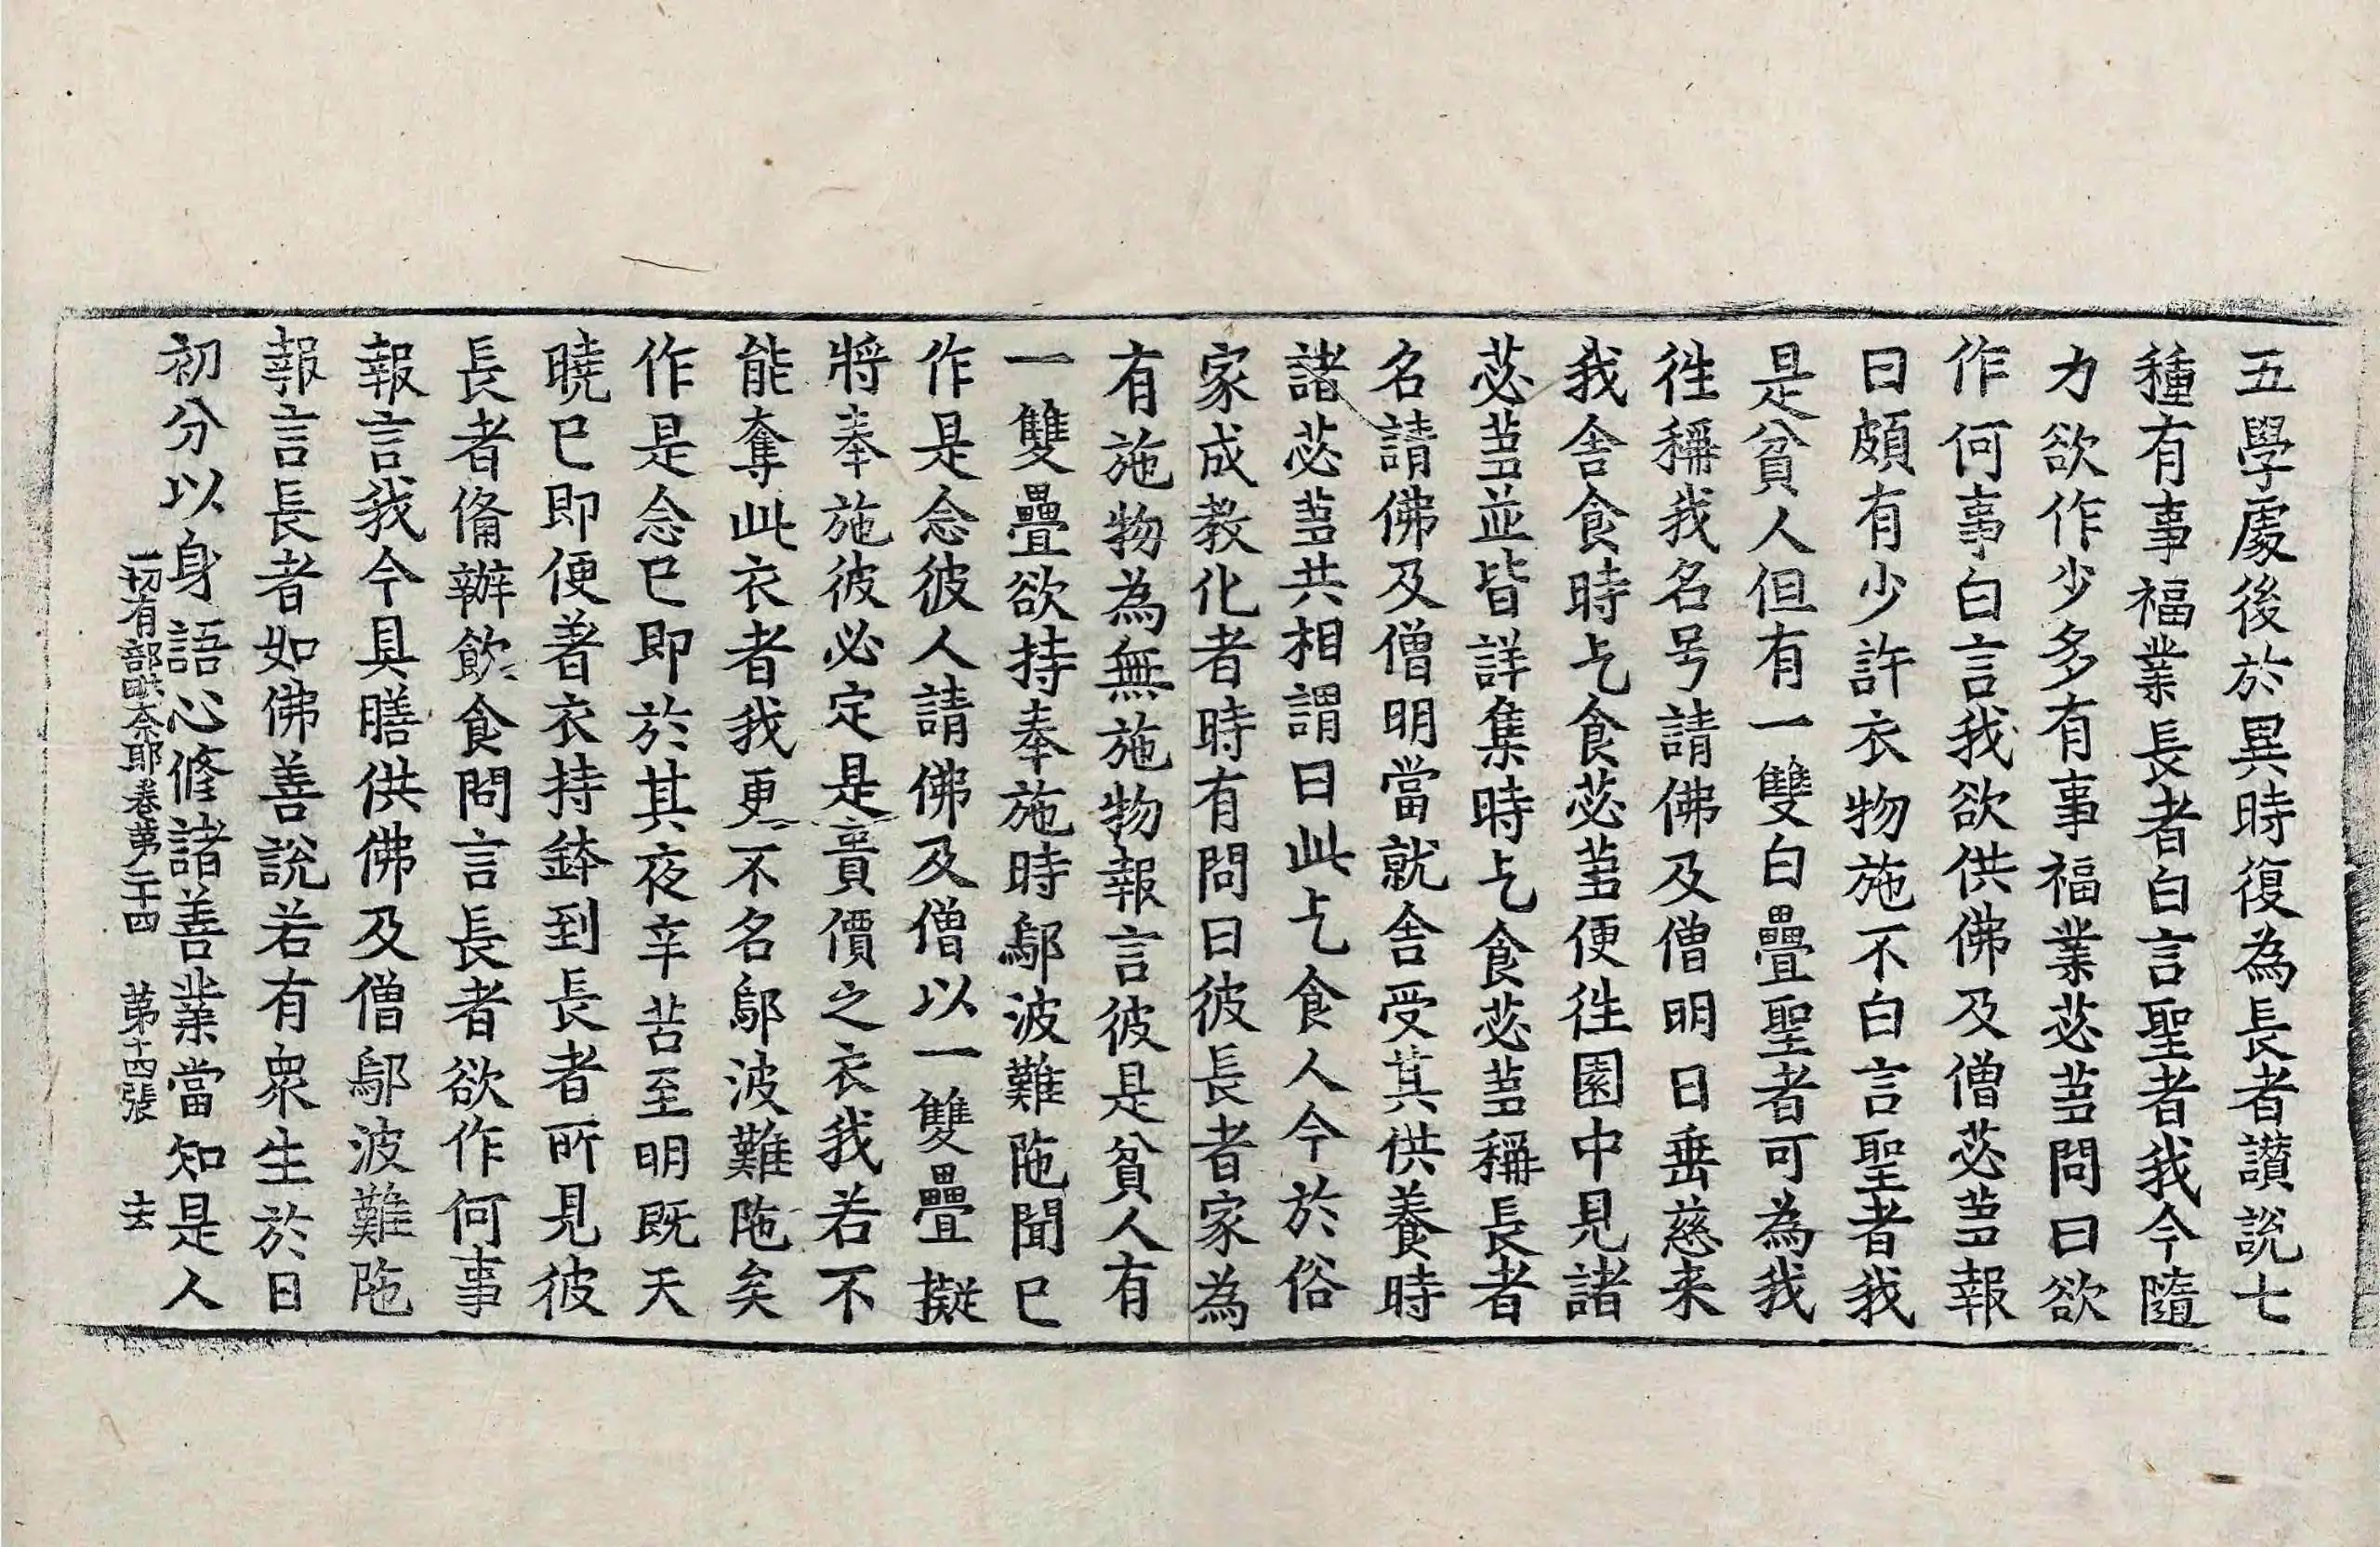 五學處後於異時復為長者讃說七
種有事福業長者白言聖者我今隨
力欲作少多有事福業苾芻問曰欲
作何事白言我欲供佛及僧苾芻報
曰頗有少許衣物施不白言聖者我
是貧人但有一雙白疊聖者可為我
徃稱我名号請佛及僧明日垂慈来
我舎食時乞食苾芻便徃園中見諸
苾芻並皆詳集時乞食苾芻稱長者
名請佛及僧明當就舎受其供養時
諸苾芻共相謂曰此乞食人今於俗
家成教化者時有問曰彼長者家為
有施物為無施物報言彼是貧人有
一雙疊欲持奉施時鄔波難陁聞已
作是念彼人請佛及僧以一雙疊擬
將奉施彼必定是貴價之衣我若不
能奪此衣者我更不名鄔波難陁矣
作是念已即於其夜辛苦至明既天
曉已即便著衣持鉢到長者所見彼
長者俻辦飲食問言長者欲作何事
報言我今具膳供佛及僧鄔波難陁
報言長者如佛善說若有衆生於日
初分以身語心修諸善業當知是人
一切有部毗奈耶卷第二十四　第十四張　去